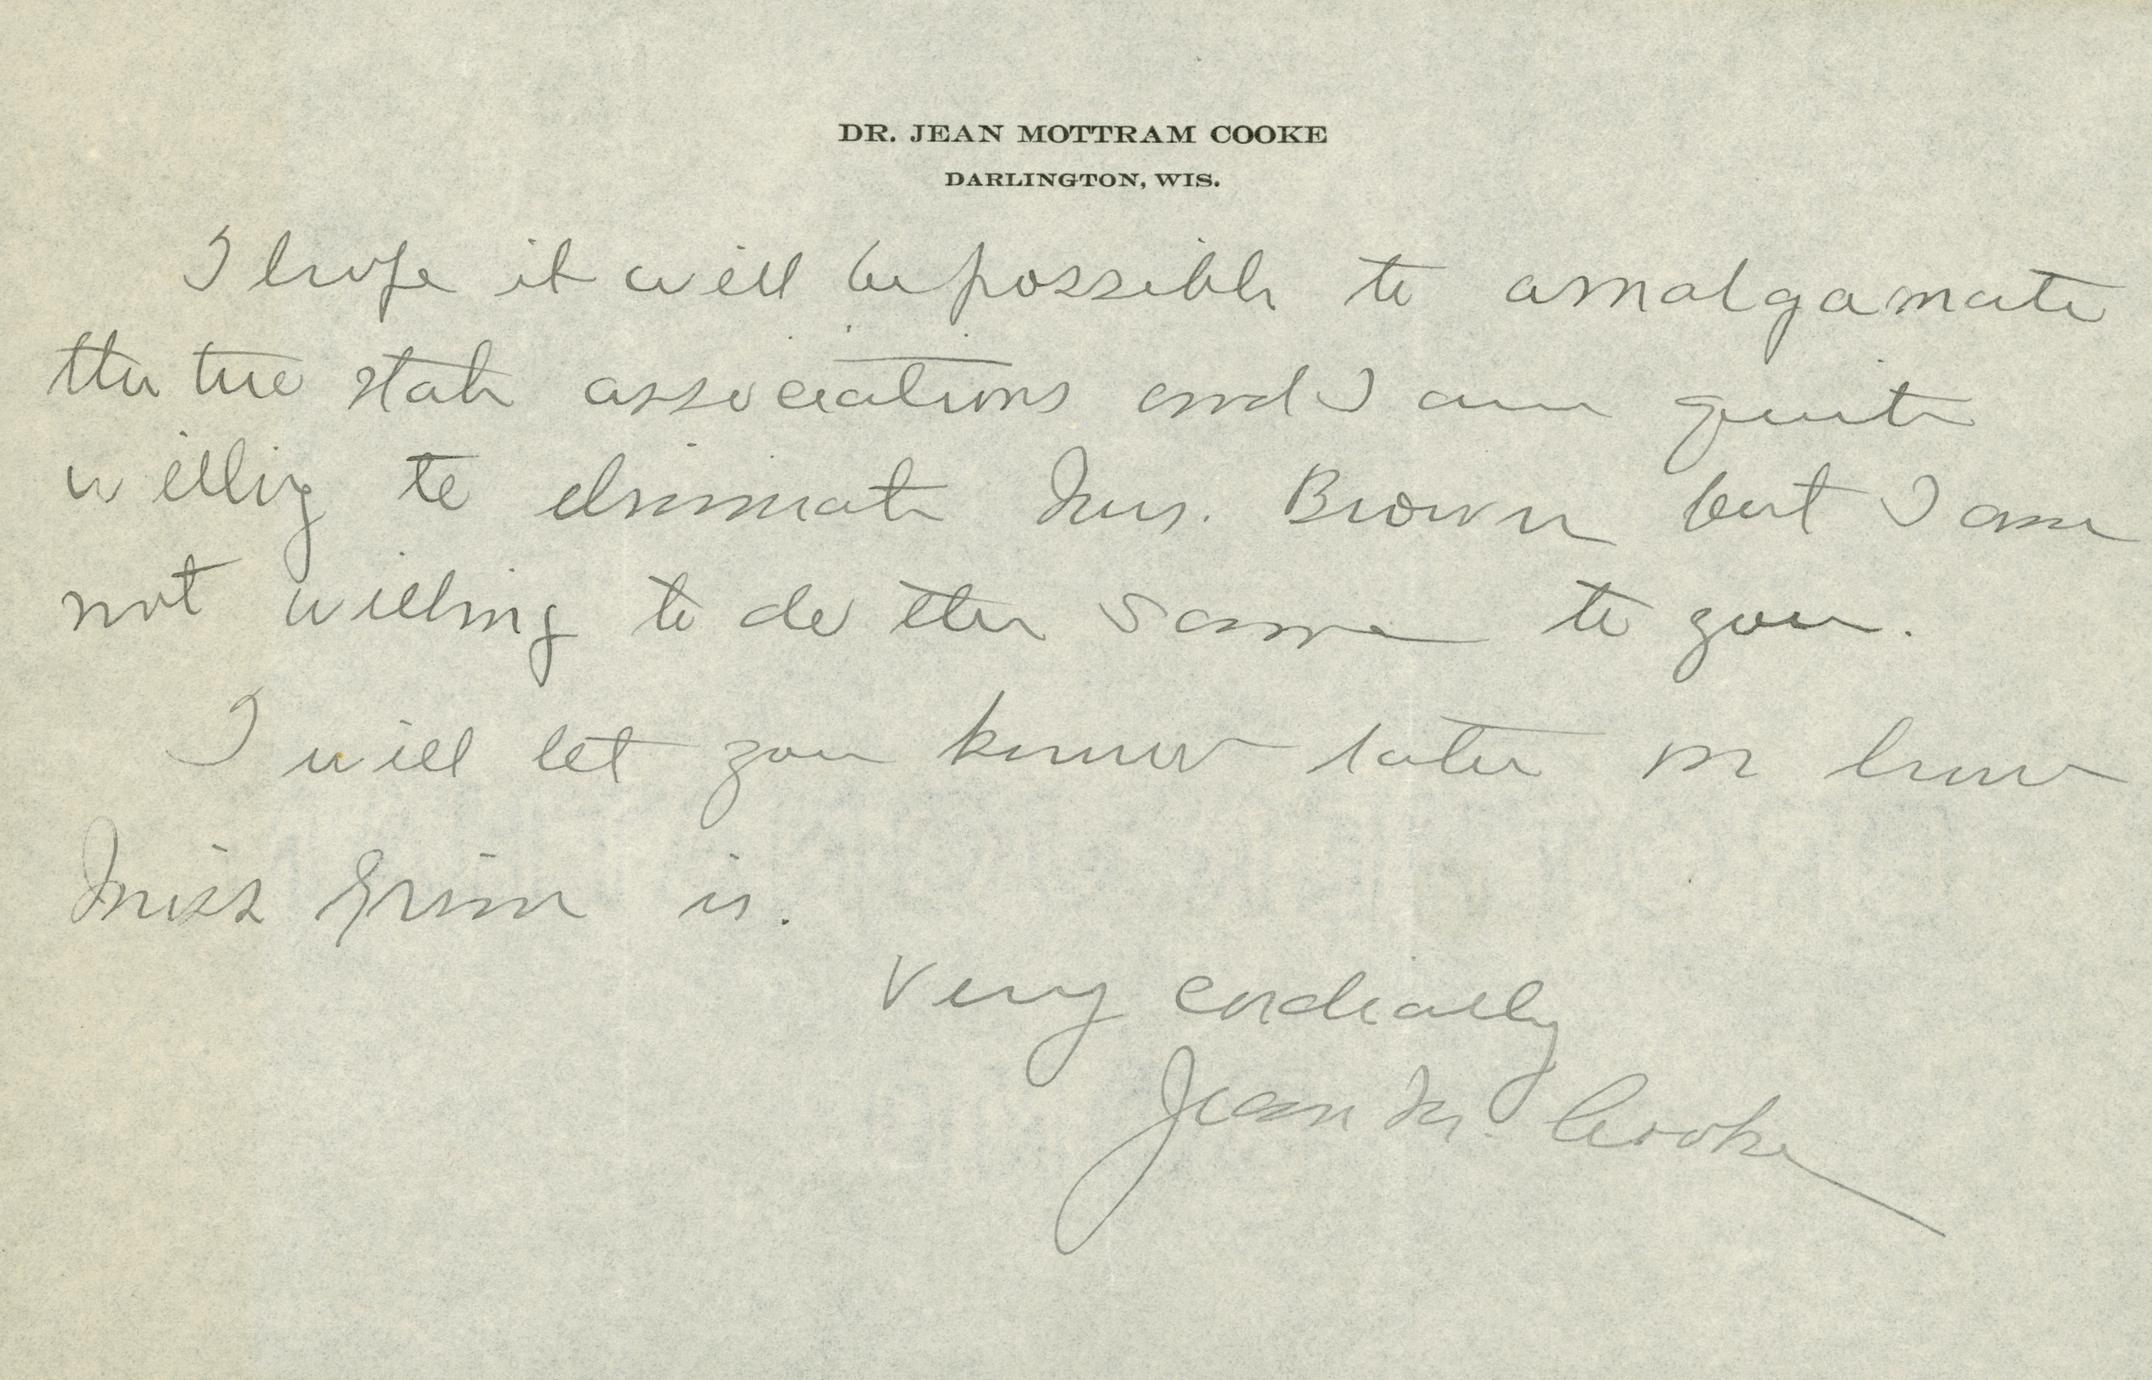 DR. JEAN MOTTRAM COOKE
DARLINGTON, WIS.
I hope it will be possible to amalgamate
the two state associations and I am quite
willing to eliminate Mrs. Brown but I am
not willing to do the same to you.
I will let you know later on how
Miss Grim is.
Very cordially
Jean M. Cooke